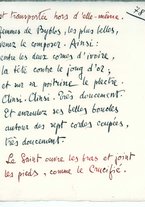 et transportée hors d'elle-même.
78
femmes de Byblos, les plus belles,
venez la composer. Ainsi :
entre les deux cornes d'ivoire,
la tête contre le joug d'or,
et sur sa poitrine le plectre.
Ainsi. Ainsi. Très doucement.
Et enroulez ses belles boucles
autour des sept cordes coupées,
très doucement.
Le Saint ouvre les bras et joint
les pieds, comme le Crucifié.